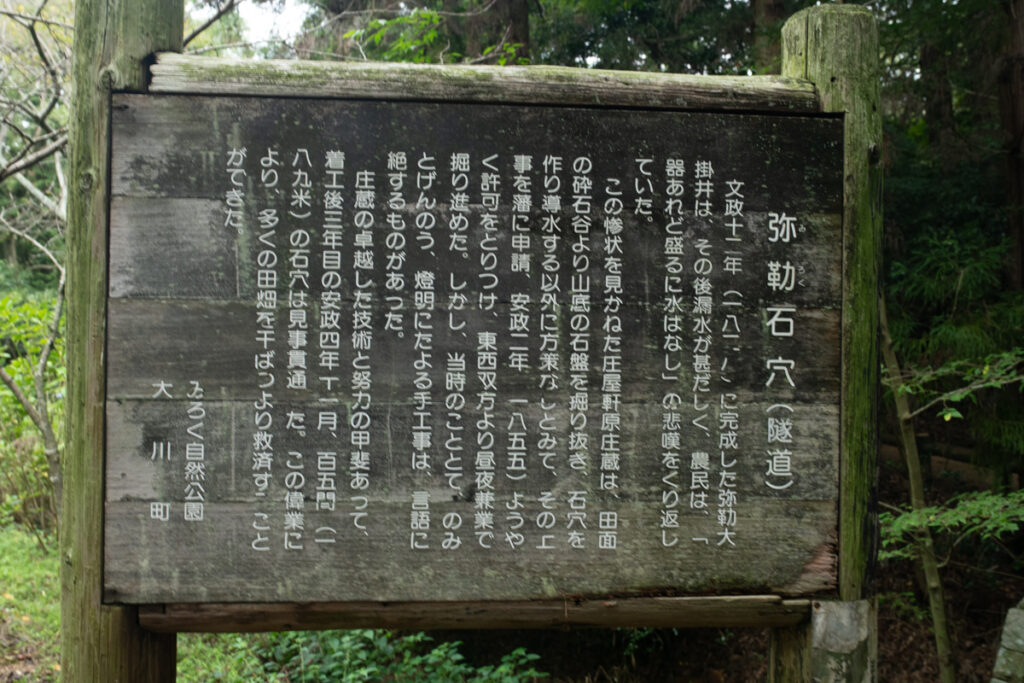 弥勒石穴（隧道）
みろく
文政十二年（一八二八）に完成した弥勒大
掛井は、その後漏水が甚だしく、農民は、「
器あれど盛るに水はなし」の悲嘆をくり返し
ていた。
この惨状を見かねた庄屋軒原庄蔵は、田面
の砕石谷より山底の石盤を掘り抜き、石穴を
作り導水する以外に方策なしとみて、その工
事を藩に申請、安政二年（一八五五）ようや
く許可をとりつけ、東西双方より昼夜兼業で
掘り進めた。しかし、当時のこととて、のみ
とげんのう、燈明にたよる手工事は、言語に
絶するものがあった。
庄蔵の卓越した技術と努力の甲斐あって、
着工後三年目の安政四年十一月、百五間（一
八九米）の石穴は見事貫通した。この偉業に
より、多くの田畑を干ばつより救済すること
ができた。
みろく自然公園
大川町